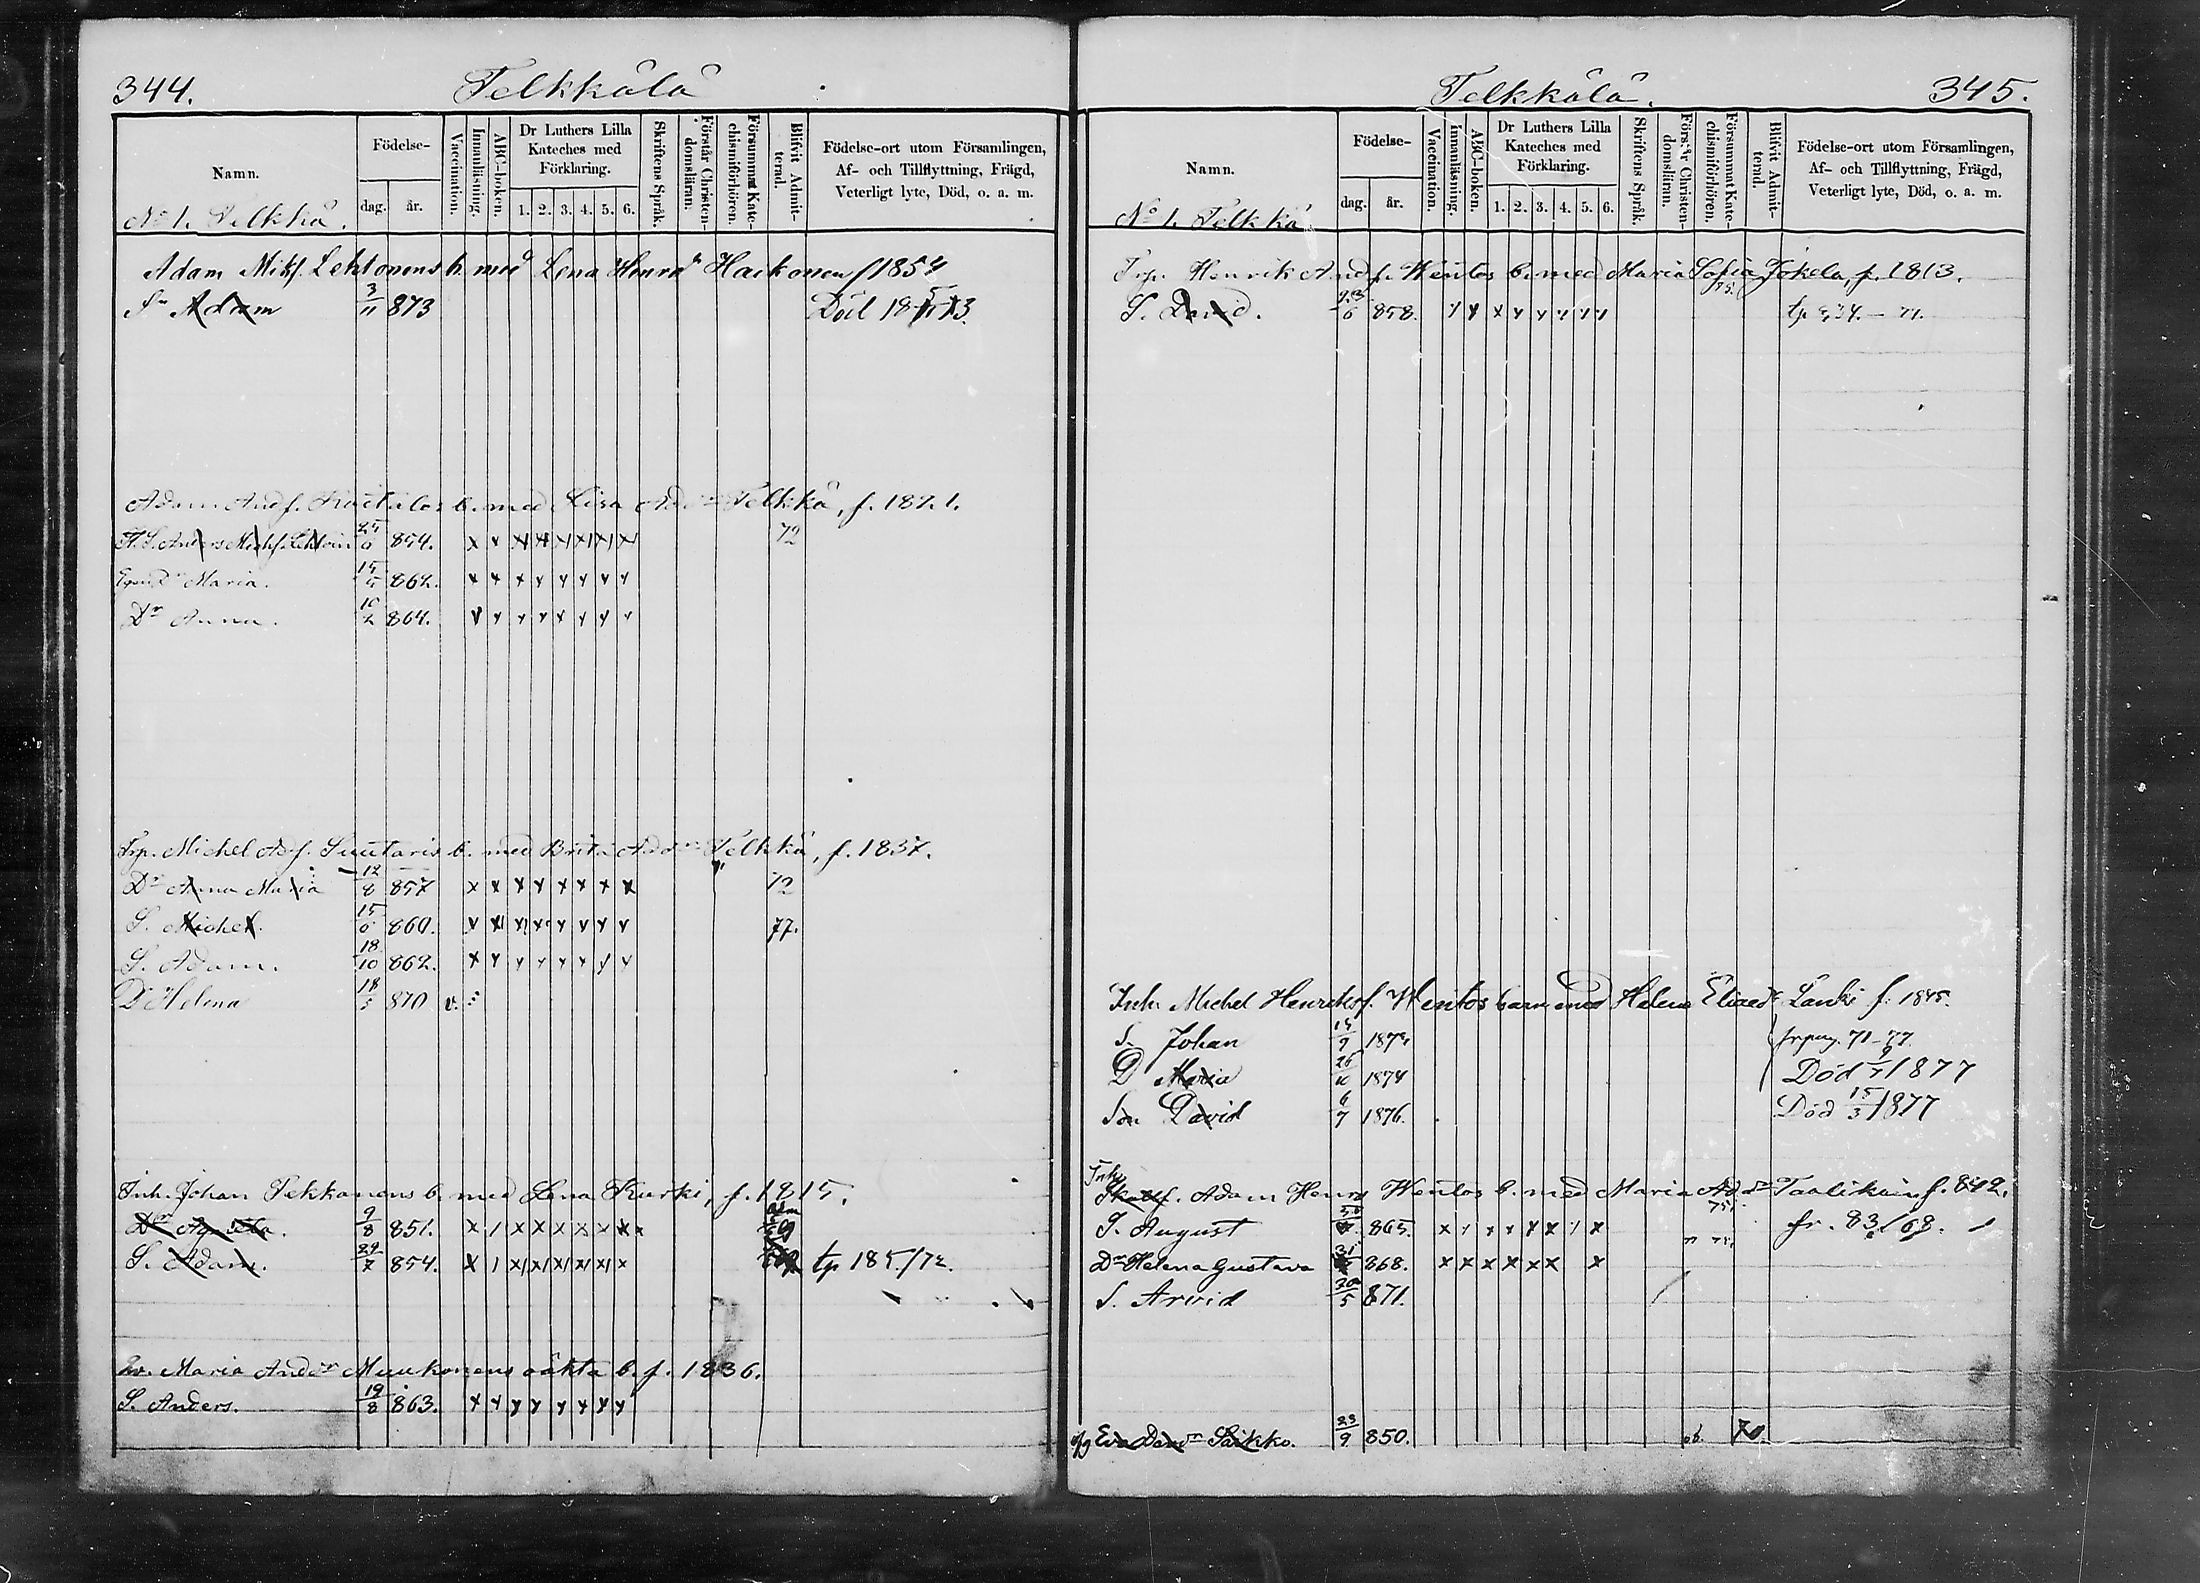 344.
Telkkälä
Namn.
Födelse-
dag.
år.
Vaccination.
Innanläsning.
ABC-boken.
Dr Luthers Lilla
Kateches med
Förklaring.
1. 2. 3. 4. 5. 6.
Skriftens Språk.
Förstår Christen-
domsläran.
Försummat Kate-
chismiförhören.
Blifvit Admit-
terad.
Födelse-ort utom Församlingen,
Af- och Tillflyttning, Frägd,
Veterligt lyte, Död, o. a. m.
No 1. Telkkä.
Adam Mikf. Lehtonens b. med Lena Henrdr Haikonen f 1854
Sn Adam 3/11 873 Död 18
Adam Andf. b. med Lisa Telkkä, f. 1821.
Anders Michf. 854. x x x x x x x x 72
Maria. 15/5 862. x x x x y y y y
Dr Anna. 10/2 864. y y y y y y y y
Trp. Michel Adf. Suutaris b. med Brita Addr Telkkä, f. 1837.
Dr Anna Maria 12/8 857 x x x x x x x x 72
S. Michel. 15/6 860. 77.
S. Adam. 18/10 862. x y y y y y y y
Dr Helena 18/5 870 v.
Inh. Johan Tekkonens b. med Lena Kurki, f. 1815.
Dr 9/8 851. x 1 x x x x x x x adm 69
S. Adam. 29/7 854. x 1 x x x x x x tp 185/72.
Maria Anddr Muukonens oäkta b. f. 1836.
S. Anders. 19/8 863. x x y y y y y y
Telkkälä.
345.
Namn.
Födelse-
dag.
år.
Vaccination.
Innanläsning.
ABC-boken.
Dr Luthers Lilla
Kateches med
Förklaring.
1. 2. 3. 4. 5. 6.
Skriftens Språk.
Förstår Christen-
domsläran.
Försummat Kate-
chismiförhören.
Blifvit Admit-
terad.
Födelse-ort utom Församlingen,
Af- och Tillflyttning, Frägd,
Veterligt lyte, Död, o. a. m.
No 1. Telkkä
Trp. Henrik Andf. Wentos b. med Maria Sofia Jokela, f. 1813.
S. David. 23/6 858. y y x y y y y y 75.
Inh. Michel Henriksf. Wentos barn med Helena Eliaedr Lanki f. 1845.
S. Johan 1872 71-77.
D Maria 26/10 1874 Död 9/1 1877
Son David 6/7 1876. Död 15/3 1877
Inh.
Adam Henrs Wentos b. med Maria Addr Taalikain f. 842.
S. August 865. x y x x x x 1 x 75. fr. 83/68.
Dr Helena Gustava 868. x x x x x x x
S. Arvid 30/5 871.
Eva Davdr Saikko. 23/9 850. ob. 70.